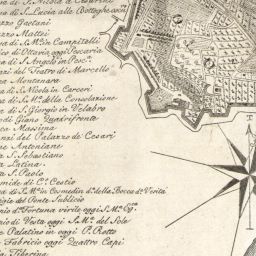 a di S. Nicola a Cesarini
a di S. Lucia alle Botteghe oscu
zzo Gaetani
zzo Mattei
a di S. M.ª in Campitelli
ico di Ottavia oggi Pescaria
a di S. Angelo in Pesc.ª
nzi del Teatro di Marcello
za Montanara
a di S. Nicola in Carceri
a di S. M.ª delle Consolazione
a di S. Giorgio in Velabro
di Giano Quadrifronte
ca Massima
anzi del Palazzo de' Cesari
e Antoniane
a S. Sebastiano
Latina
a S. Paolo
mide di C.º Cestio
a di S. M.ª in Cosmedin d.ª della Bocca d.ª Verità
igie del Ponte Sublicio
io d. Fortuna virile oggi S. M.ª Egz.
io di Vesta oggi S. M.ª del Sole
e Palatino in oggi P. Rotto
Fabricio oggi Quattro Capi
Tiberina